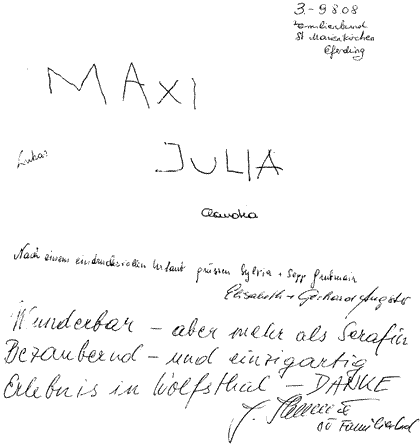 3.-9808
Familienbund
St Marienkirchen
Eferding
MAXI
Lukas
JULIA
Claudia
Nach einem eindrucksvollen Urlaub grüssen Sylvia + Sepp
Elisabeth + Gerhard
Wunderbar – aber mehr als Serafin
Bezaubernd – und einzigartig
Erlebnis in Wolfsthal – DANKE
OÖ Familienbund